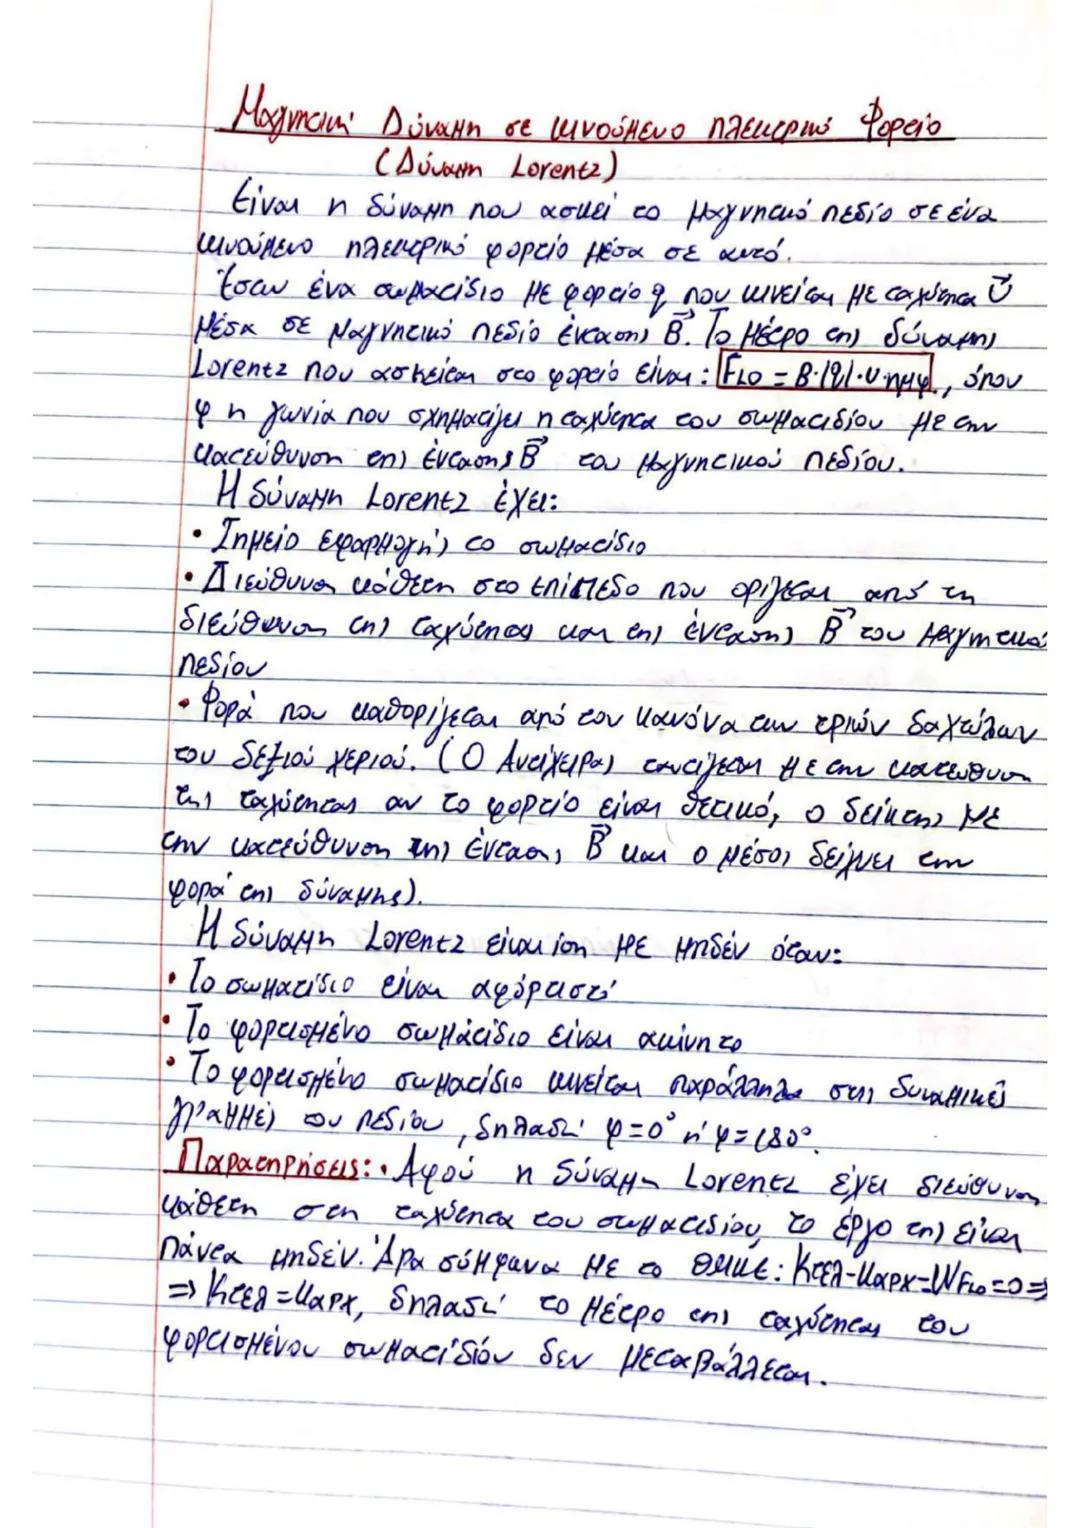 Μαγνητική Δύναμη σε κινούμενο ηλεκτρικό Φορείο
(Δύναμη Lorentz)
Είναι η δύναμη που ασκεί το μαγνητικό πεδίο σε ένα
κινούμενο ηλεκτρικό φορείο μέσα σε αυτό.
Έστω ένα σωματίδιο με φορείο q που κινείται με ταχύτητα υ⃗
μέσα σε μαγνητικό πεδίο έντασης B⃗. Το μέτρο της δύναμης
Lorentz που ασκείται στο φορείο είναι: FLO = B·|q|·υ·ημφ, όπου
φ η γωνία που σχηματίζει η ταχύτητα του σωματιδίου με την
κατεύθυνση της έντασης B⃗ του μαγνητικού πεδίου.
Η δύναμη Lorentz έχει:
• Σημείο εφαρμογής το σωματίδιο
• Διεύθυνση κάθετη στο επίπεδο που ορίζεται από τη
διεύθυνση της ταχύτητας και της έντασης B⃗ του μαγνητικού
πεδίου
• Φορά που καθορίζεται από τον κανόνα των τριών δαχτύλων
του δεξιού χεριού. (Ο Αντίχειρας ταυτίζεται με την κατεύθυνση
της ταχύτητας αν το φορτίο είναι θετικό, ο δείκτης με
την κατεύθυνση της έντασης B⃗ και ο μέσος δείχνει την
φορά της δύναμης).
Η δύναμη Lorentz είναι ίση με μηδέν όταν:
• Το σωματίδιο είναι αφόρτιστο
• Το φορτισμένο σωμάτιδιο είναι ακίνητο
• Το φορτισμένο σωματίδιο κινείται παράλληλα στις δυναμικές
γραμμές του πεδίου, δηλαδή φ=0° ή φ=180°.
Παρατηρήσεις: • Αφού η δύναμη Lorentz έχει διεύθυνση
κάθετη στην ταχύτητα του σωματιδίου, το έργο της είναι
πάντα μηδέν. Άρα σύμφωνα με το ΘΜΚΕ: Κτελ-Καρχ=WFLO=0⇒
⇒ Κτελ=Καρχ, δηλαδή το μέτρο της ταχύτητας του
φορτισμένου σωματιδίου δεν μεταβάλλεται.